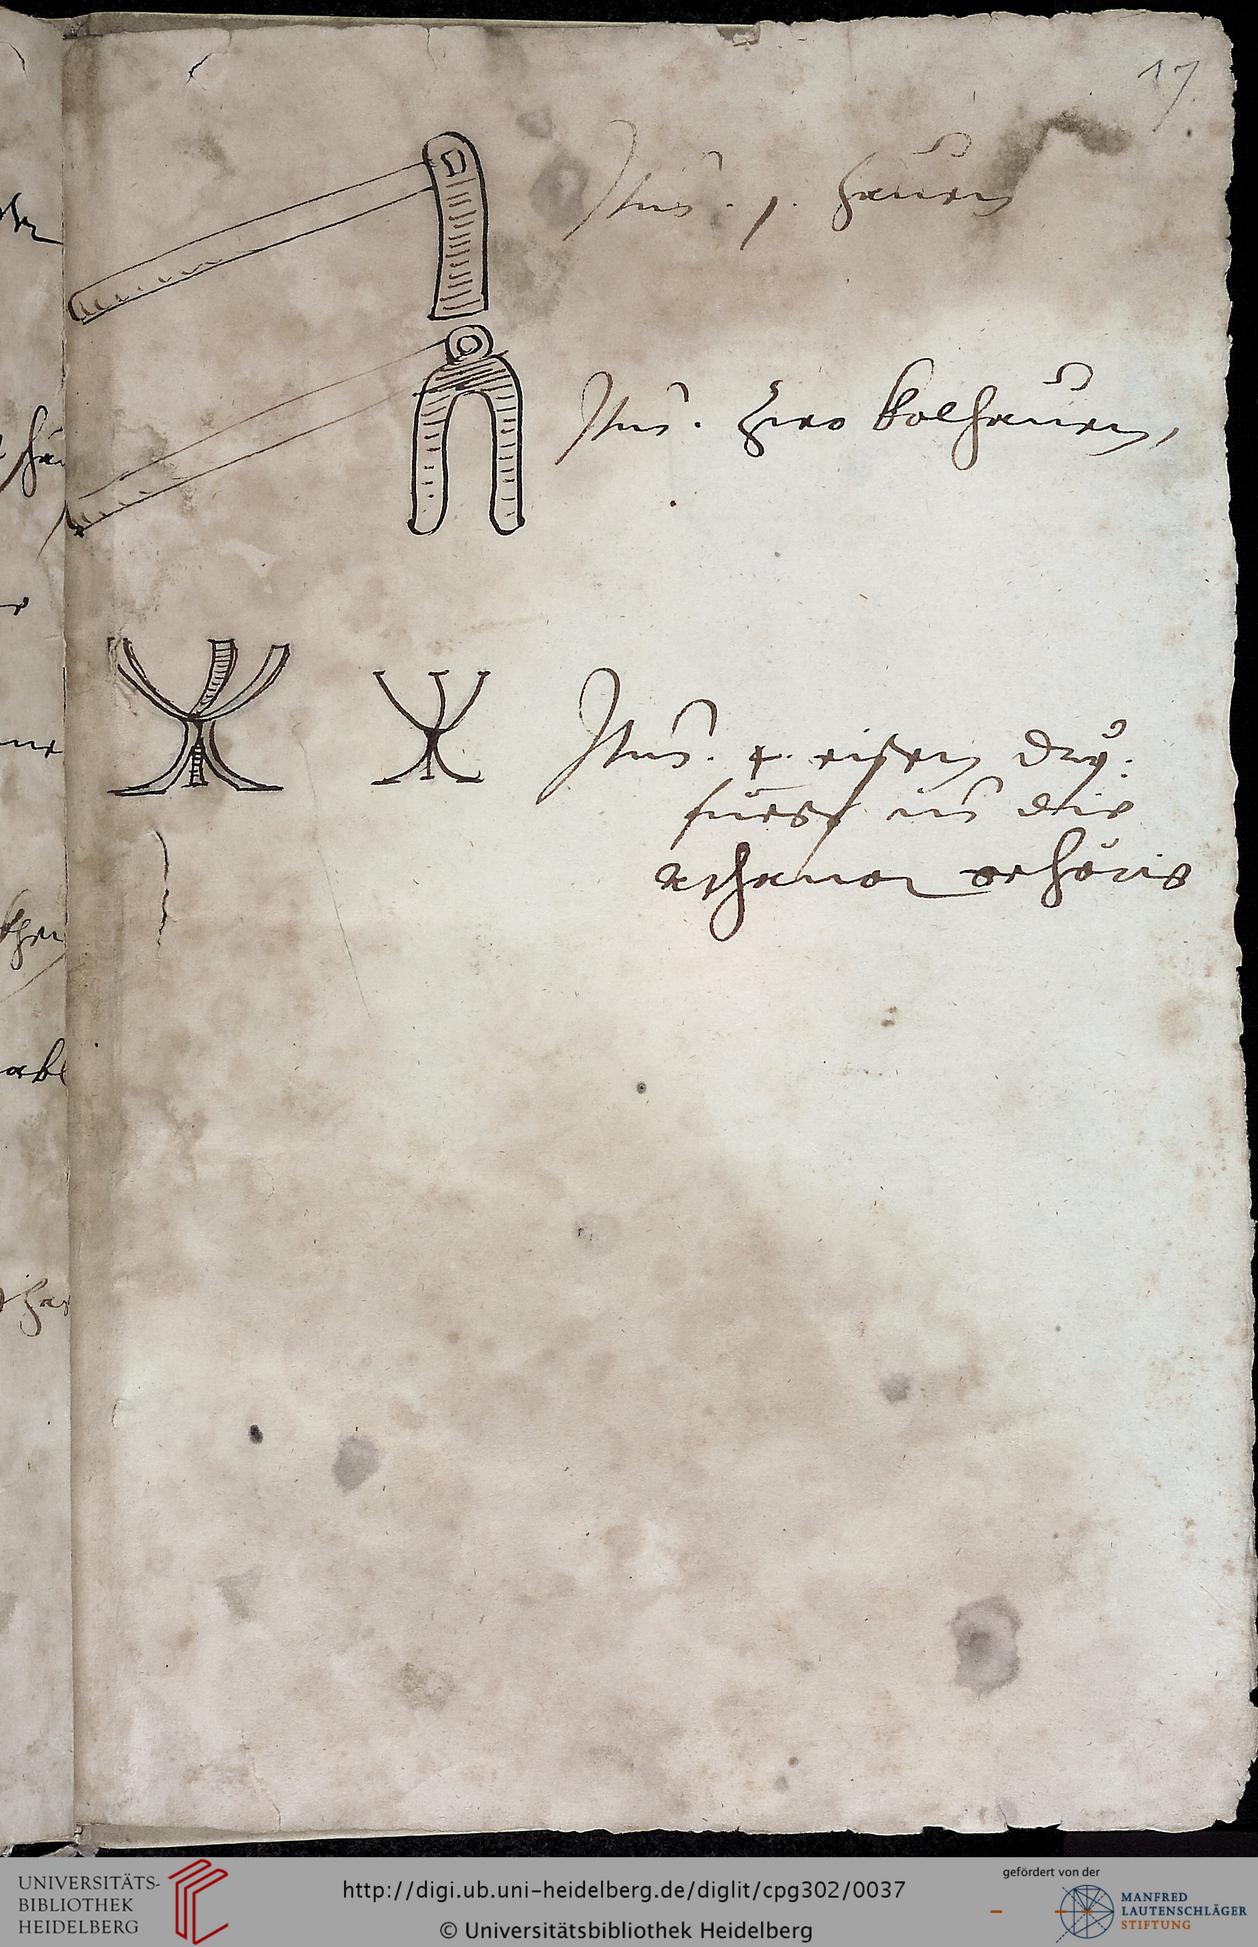 17
Item . 1 . hauen
Item . zwo kolhauen,
Item . 4 . eisen dry:
fuess in die
athanor gehöris
http://digi.ub.uni-heidelberg.de/diglit/cpg302/0037
© Universitätsbibliothek Heidelberg
UNIVERSITÄTS-
BIBLIOTHEK
HEIDELBERG
gefördert von der
MANFRED
LAUTENSCHLÄGER
STIFTUNG